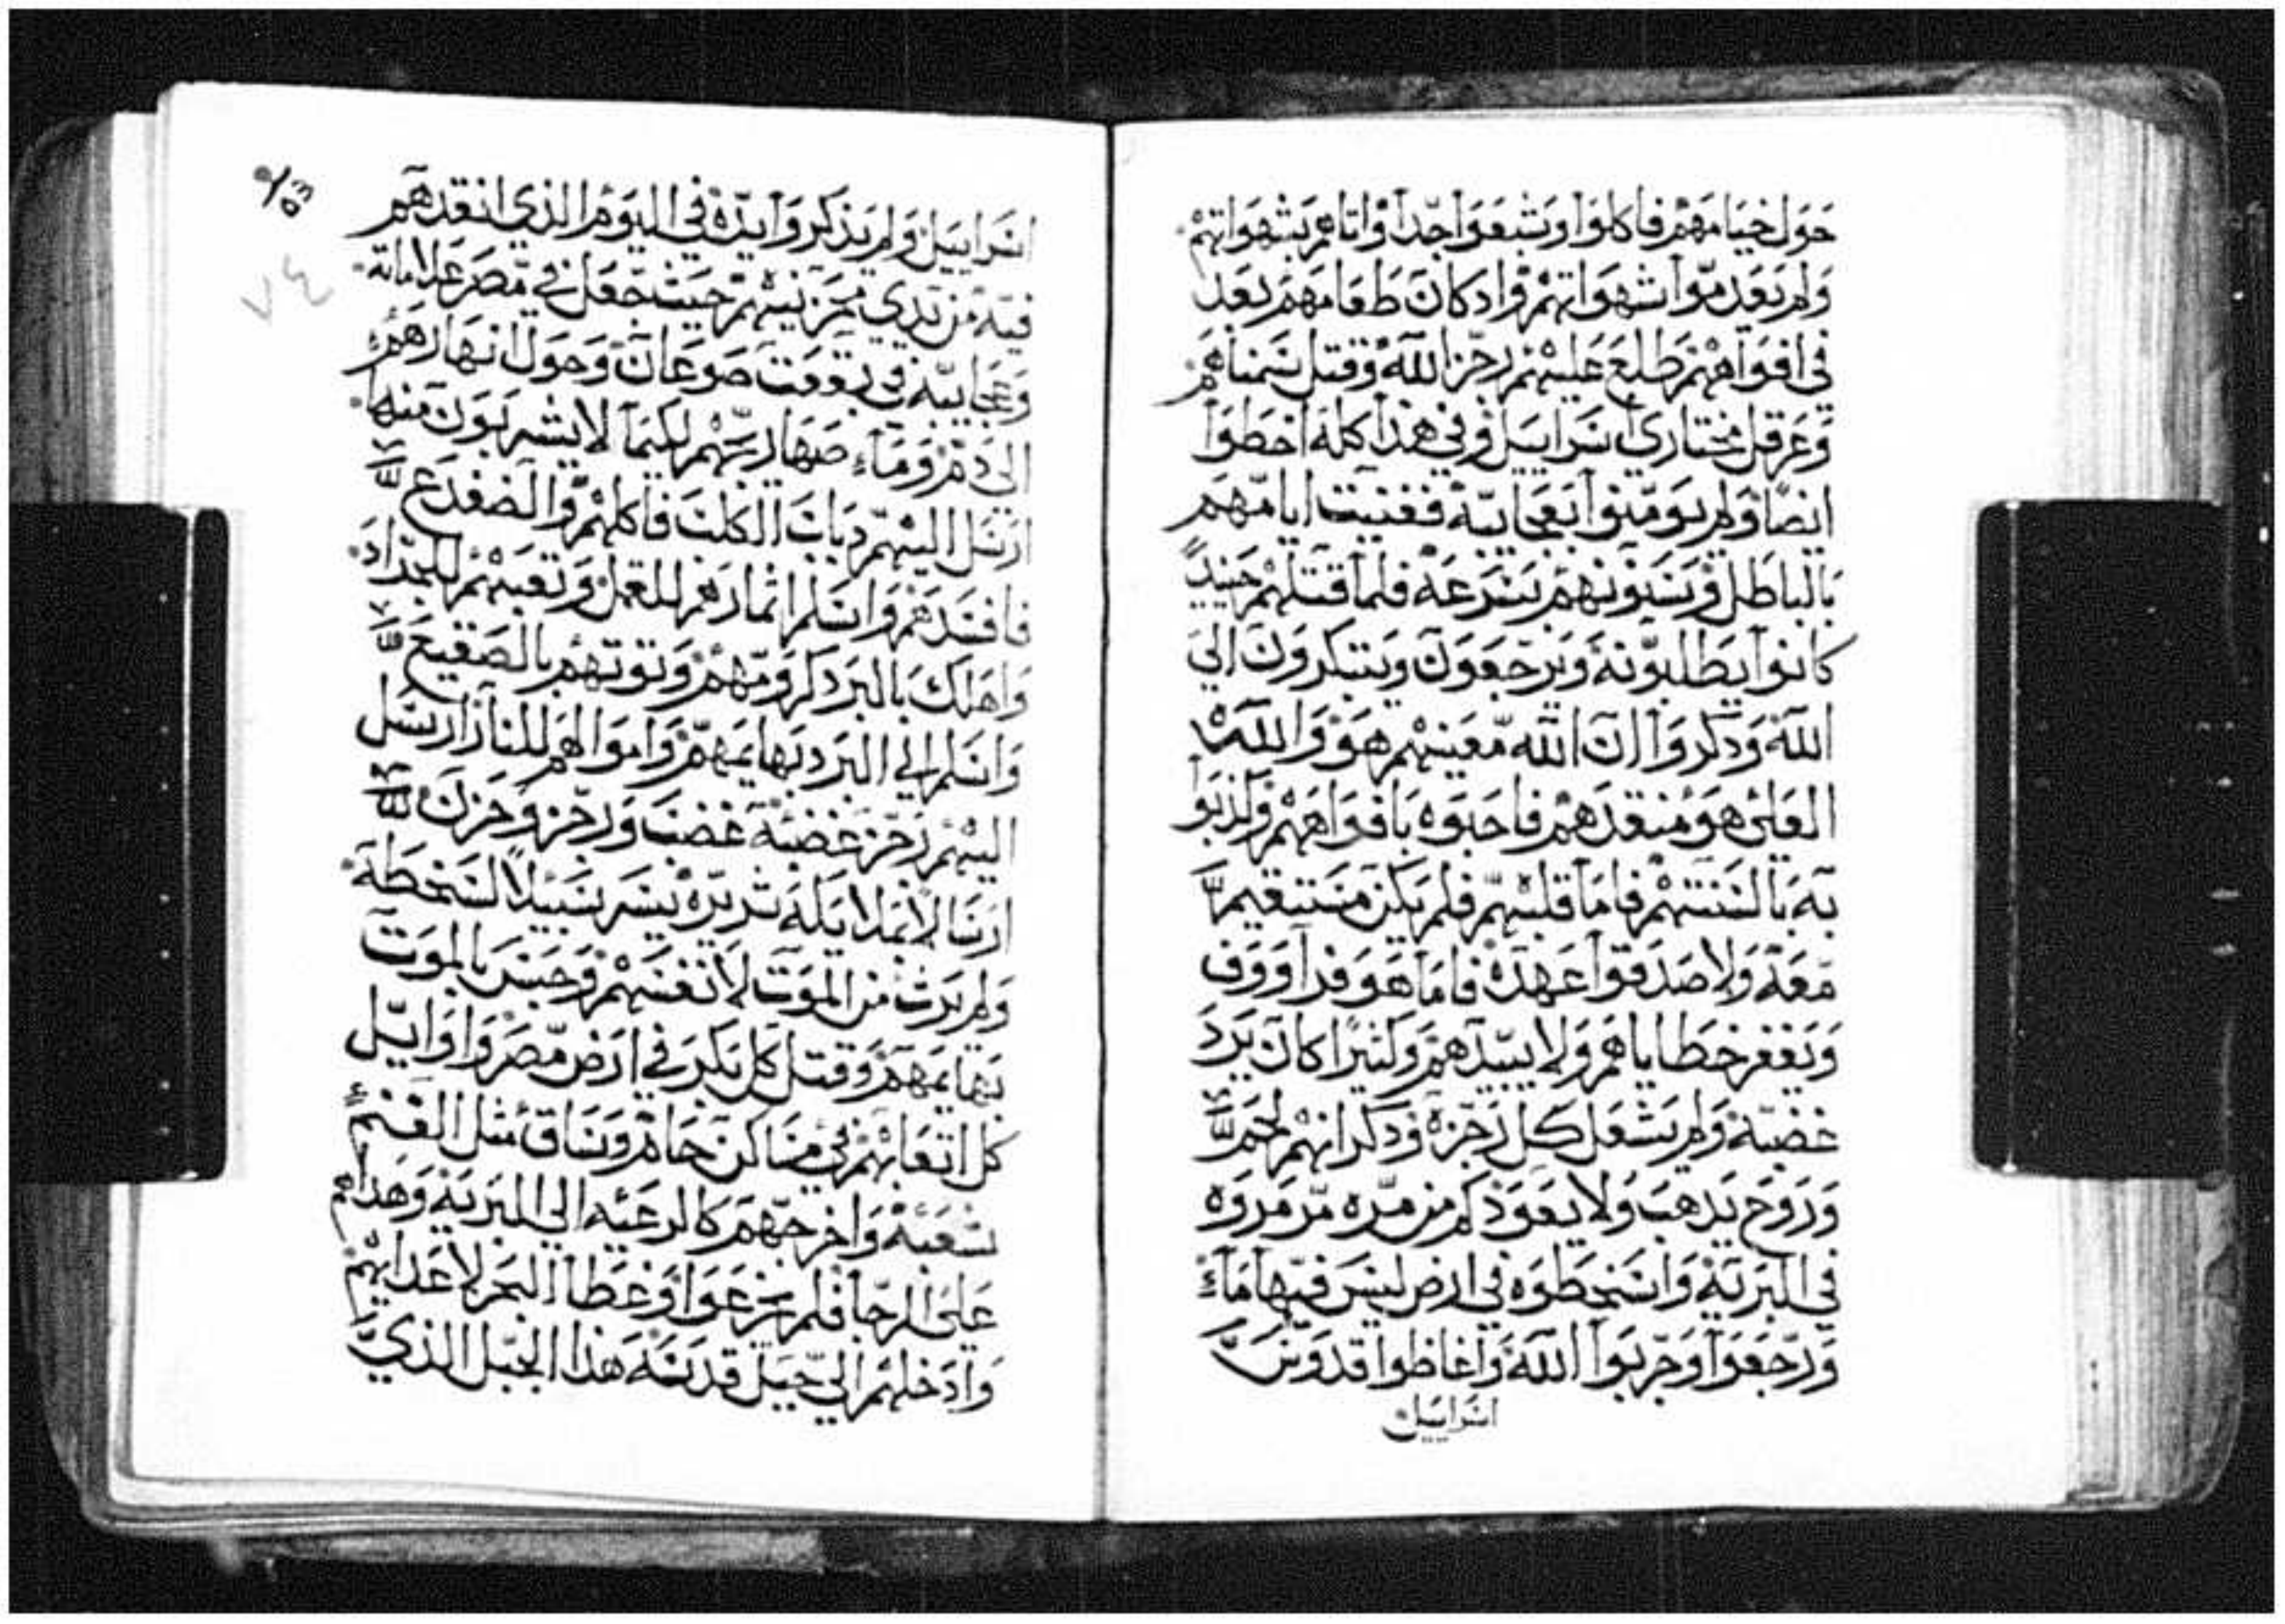 حول خيامهم فاكلوا وشبعوا جدا واتاهم بشهواتهم
ولم يعدموا شهواتهم واد كان طعامهم بعد
في افواههم طلع عليهم رجز الله وقتل سمناهم
وعرقل مختاري اسراييل وفي هذا كله اخطوا
ايضا ولم يومنوا بعجايبه ففنيت ايامهم
بالباطل وسنونهم بسرعه فلما قتلهم حينيد
كانوا يطلبونه ويرجعون ويبتكرون الي
الله ودكروا ان الله معينهم هو والله
العلي هو منقدهم فاحبوه بافواههم وكذبوا
به بالسنتهم فاما قلبهم فلم يكن مستقيم
معه ولا صدقوا عهده فاما هو فراووف
ويغفر خطاياهم ولا يبيدهم وكثيرا كان يرد
غضبه ولم يشعل كل رجزه ودكر انهم لحم
وروح يدهب ولا يعود كم من مره مرمروه
في البريه واسخطوه في ارض ليس فيها ماء
ورجعوا وجربوا الله واغاظوا قدوس
اسراييل
اسراييل ولم يذكروا يده في اليوم الذي انقدهم
فيه من يدي محزنيهم حيث جعل في مصر علاماته
وعجايبه في بقعت صوعان وحول انهارهم
الي دم وماء صهاريجهم لكيما لا يشربون منها
ارسل اليهم دباب الكلب فاكلهم والضفدع
فافسدهم واسلم اثمارهم للقمل وتعبهم للجراد
واهلك بالبرد كرومهم وتوتهم بالصقيع
واسلم الي البرد بهايمهم واموالهم للنار ارسل
اليهم رجز غضبه غضب ورجز وحزن
ارسالا بملايكه شريره يسر سبيلا لسخطه
ولم يرث من الموت لانفسهم وحبس بالموت
بهايمهم وقتل كل بكر في ارض مصر واوايل
كل اتعابهم في مساكن حام وساق مثل الغنم
شعبه واخرجهم كالرعيه الي البريه وهداهم
علي الرجا فلم يجزعوا وغطا البحر لاعدايهم
وادخلهم الي جبل قدسه هذا الجبل الذي
٧٤